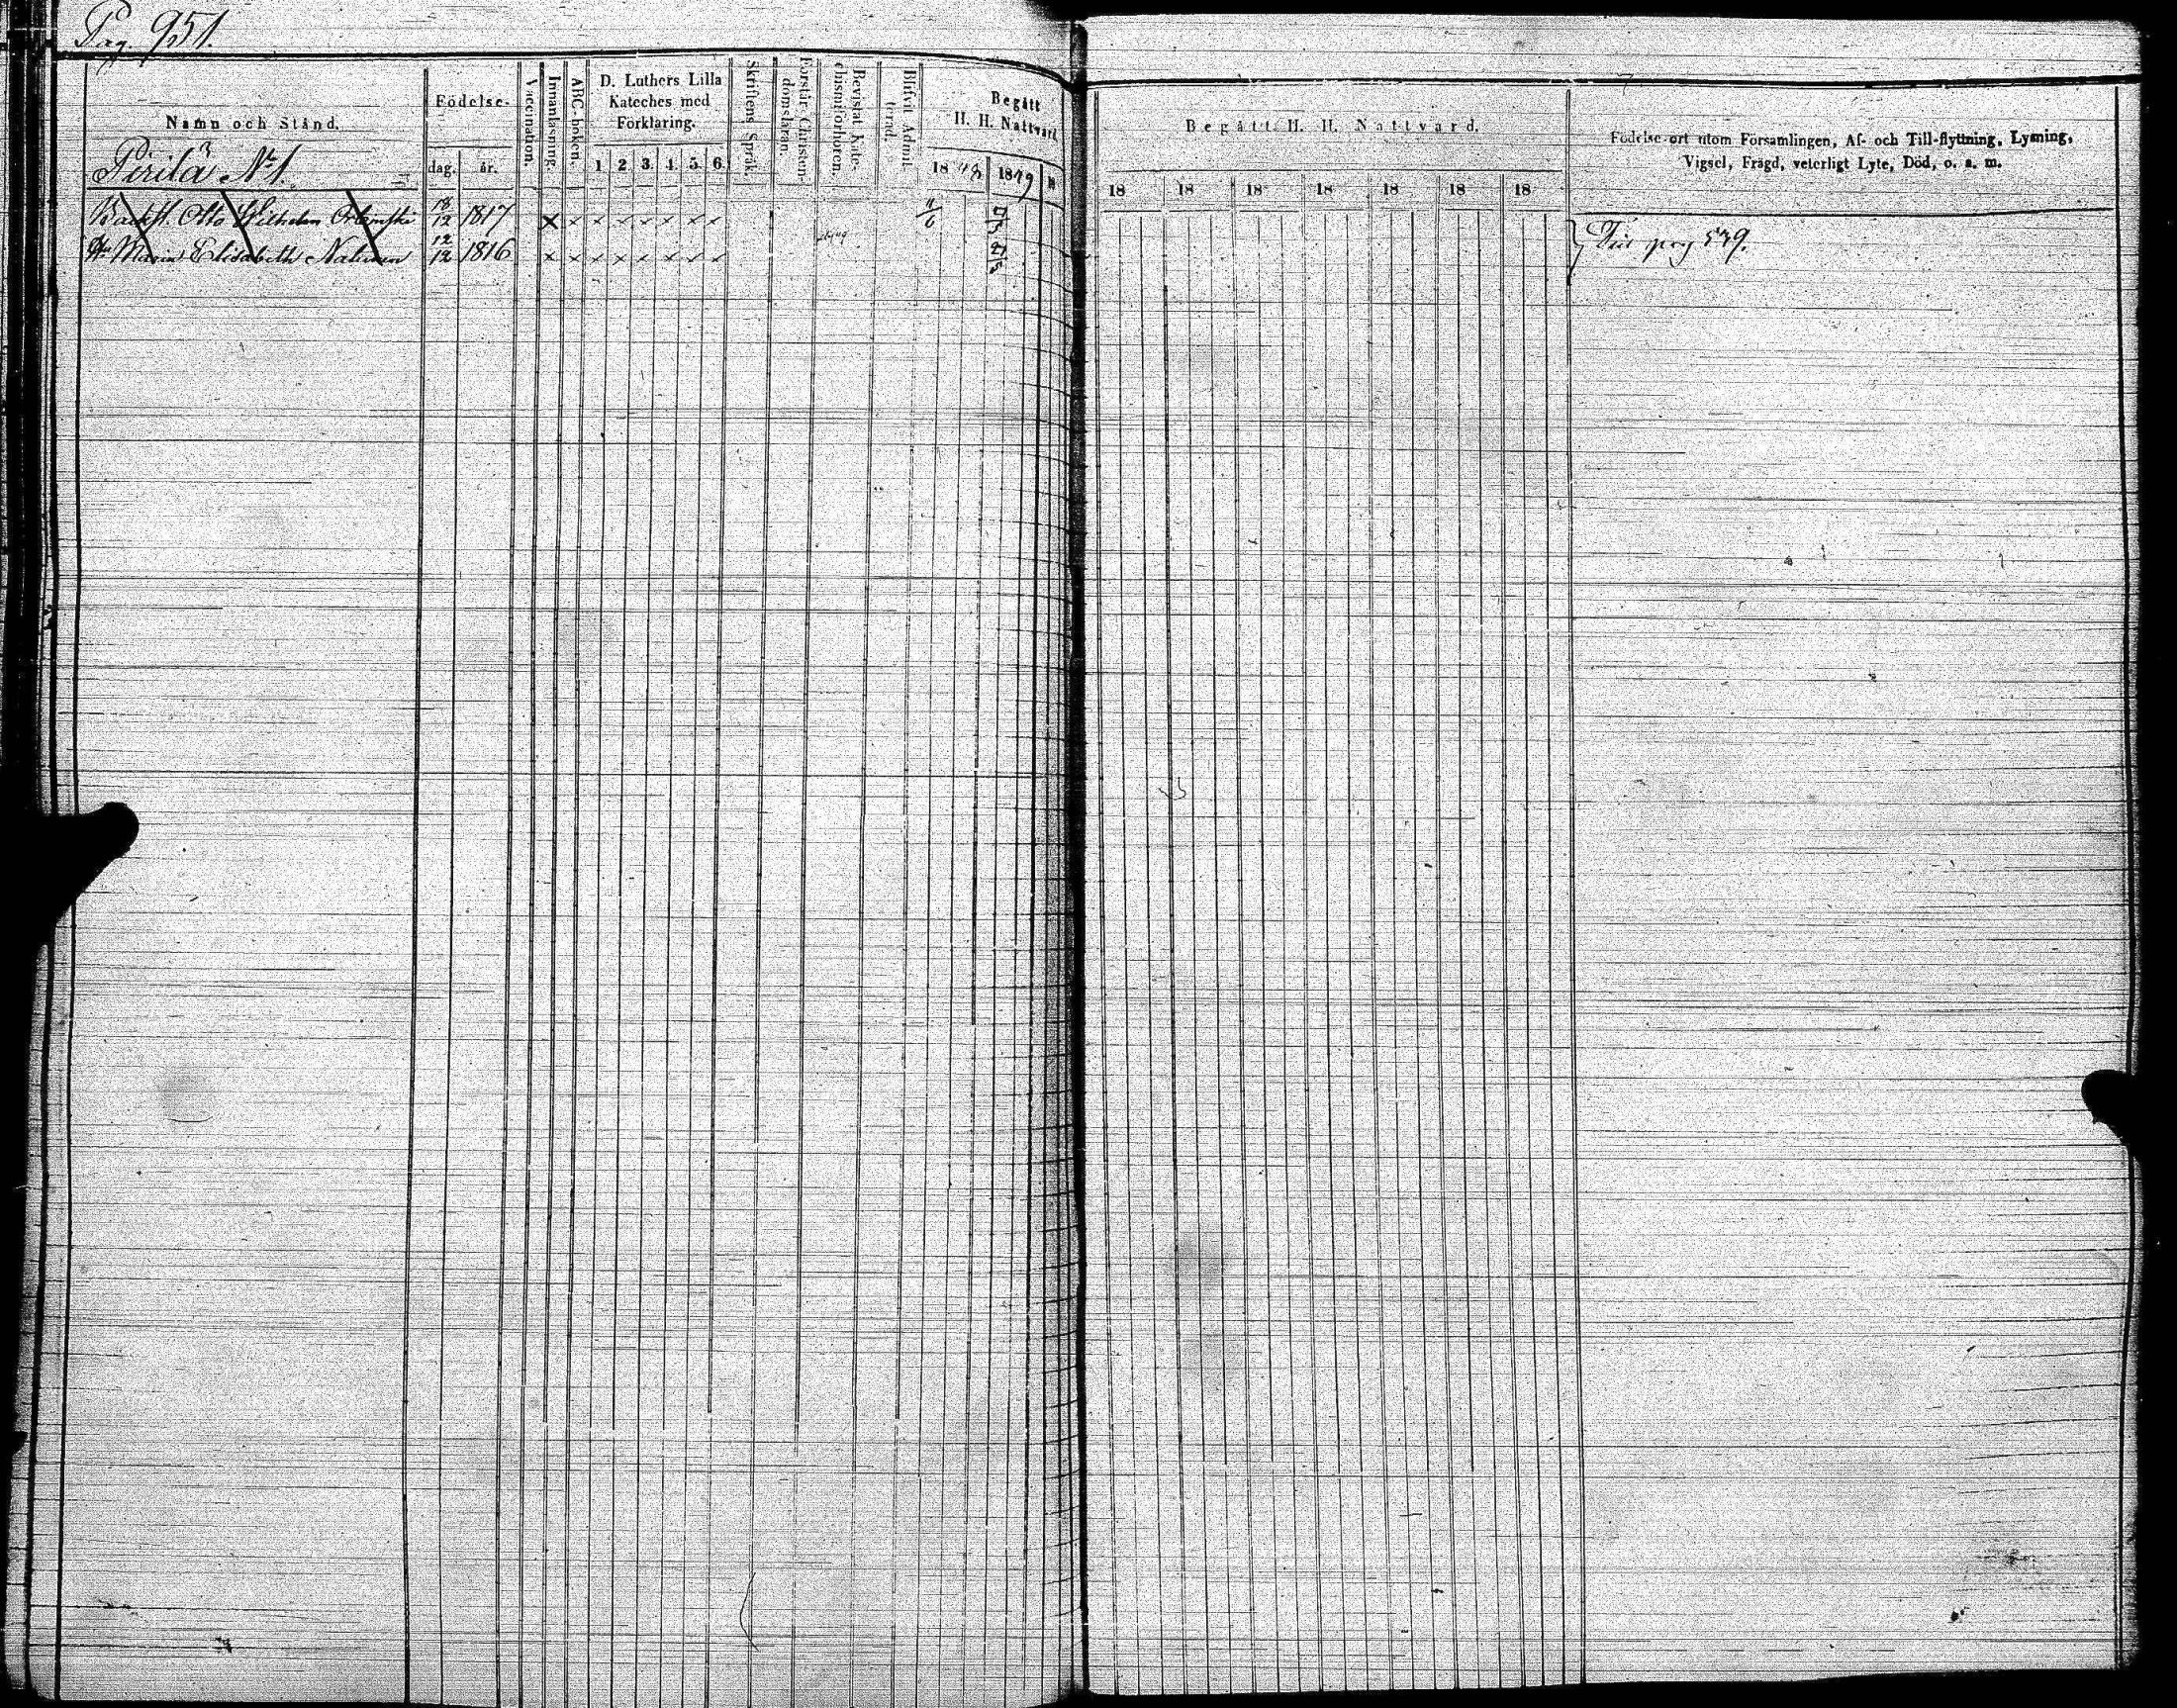 Pag. 951.
Namn och Stånd.
Födelse-
dag.
år.
Vaccination.
Innanläsning.
ABC-boken.
D. Luthers Lilla
Kateches med
Förklaring.
1 2 3. 4. 5. 6.
Skriftens Språk.
Förstår Christen-
domsläran.
Bevistat Kate-
chismiförhören.
Blifvit Admit-
terad.
Begått
H. H. Nattvard.
1848 1849 18
Begått H. H. Nattvard.
18 18 18 18 18 18 18
Födelse-ort utom Församlingen, Af- och Till-flyttning, Lysning,
Vigsel, Frägd, veterligt Lyte, Död, o. s. m.
Pirilä No 1.
Otto Wilhelm 18/12 1817 x x x x x x x x 11/6
Maria Elisabeth 12/12 1816 x x x x x x x x
pag 539.